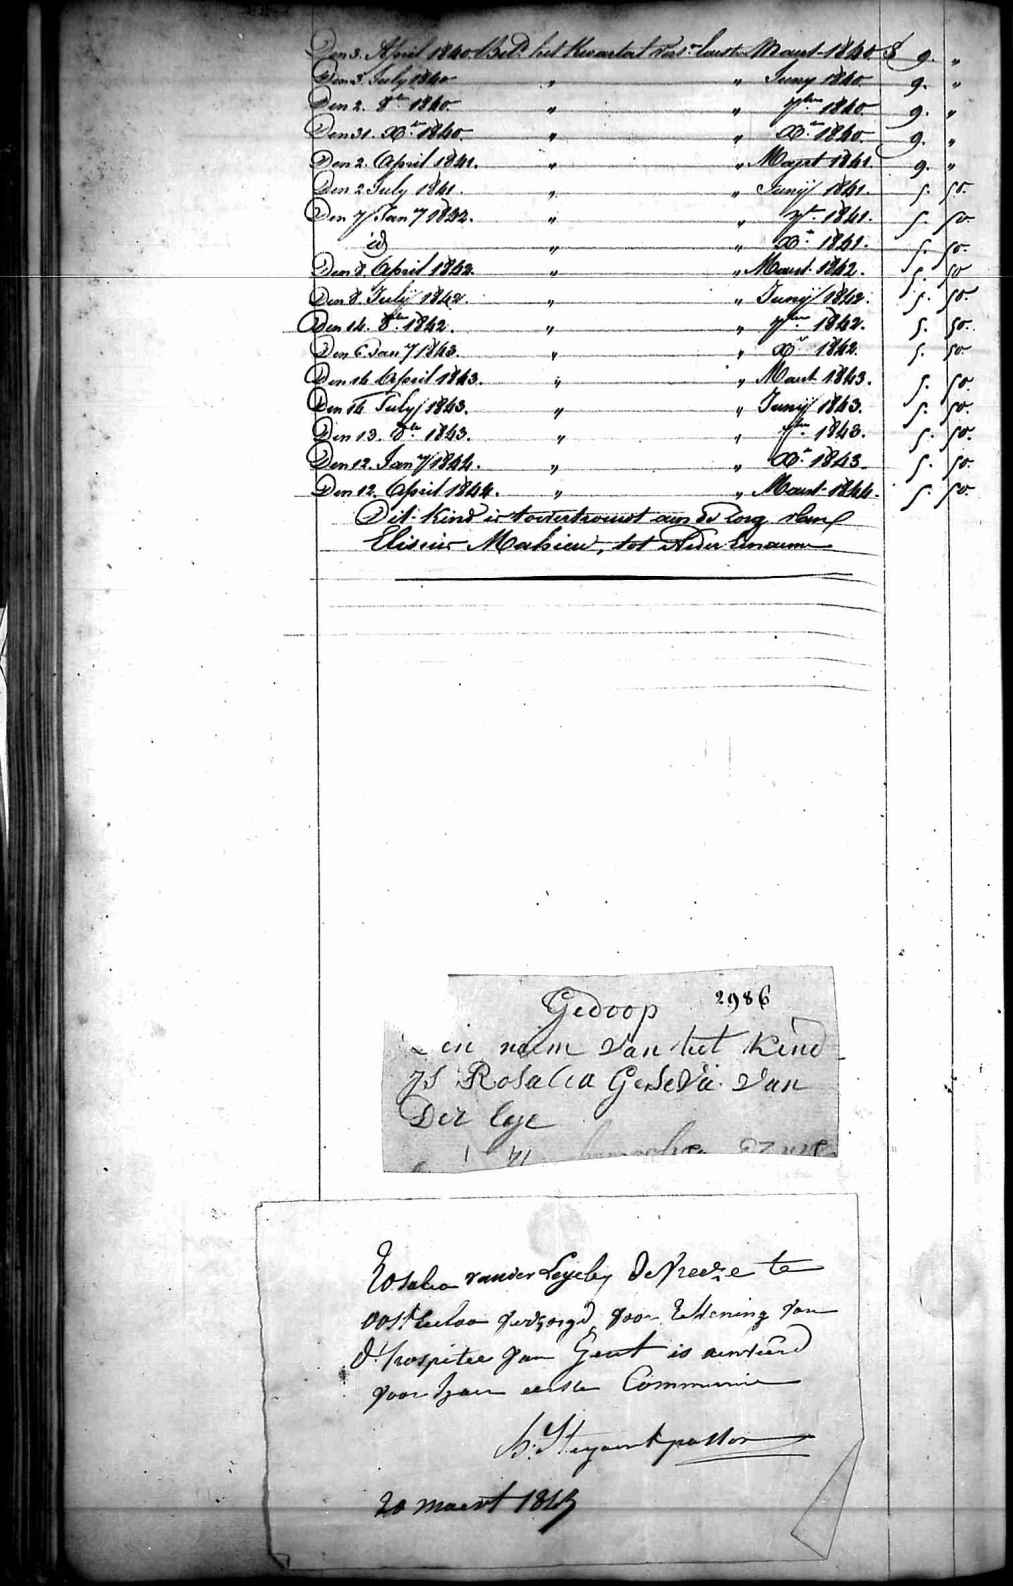 Den 3. April 1840. Bet.d het Kwartal vers.n laest Maert 1840. 9. "
Den 3. July 1840 " " Juny 1840. 9. "
Den 2. 8.bre 1840. " " 7.bre 1840 9. "
Den 31. X.r 1840. " " X.r 1840. 9. "
Den 2. April 1841. " " Maert 1841. 9. "
Den 2 July 1841. " " Junij 1841. 5. 50.
Den 7 Jan.y 1842. " " 7.r 1841. 5. 50.
id " " X.r 1841. 5. 50.
Den 8. April 1842. " " Maert 1842. 5. 50
Den 8. July 1842. " " Junij 1842. 5. 50.
Den 14. 8.bre 1842. " " 7.bre 1842. 5. 50.
Den 6 Jan.y 1843. " " X.r 1842. 5. 50
Den 14 April 1843. " " Maert 1843. 5. 50.
Den 14 July 1843. " " Junij 1843. 5. 50.
Den 13. 8.bre 1843. " " 7.bre 1843. 5. 50.
Den 12. Jan.y 1844. " " X.r 1843. 5. 50.
Den 12. April 1844. " " Maert 1844. 5. 50.
Dit kind is toevertrouwt aen de zorg van
Mahieu, tot Neder
Gedoop 2986
en naem van het kind
is Rosalia van
Der leye
Rosalia vander te
voor Rekening van
d'hospitee van Gent is
voor haer eerste Communie
pastor
20 maert 1843